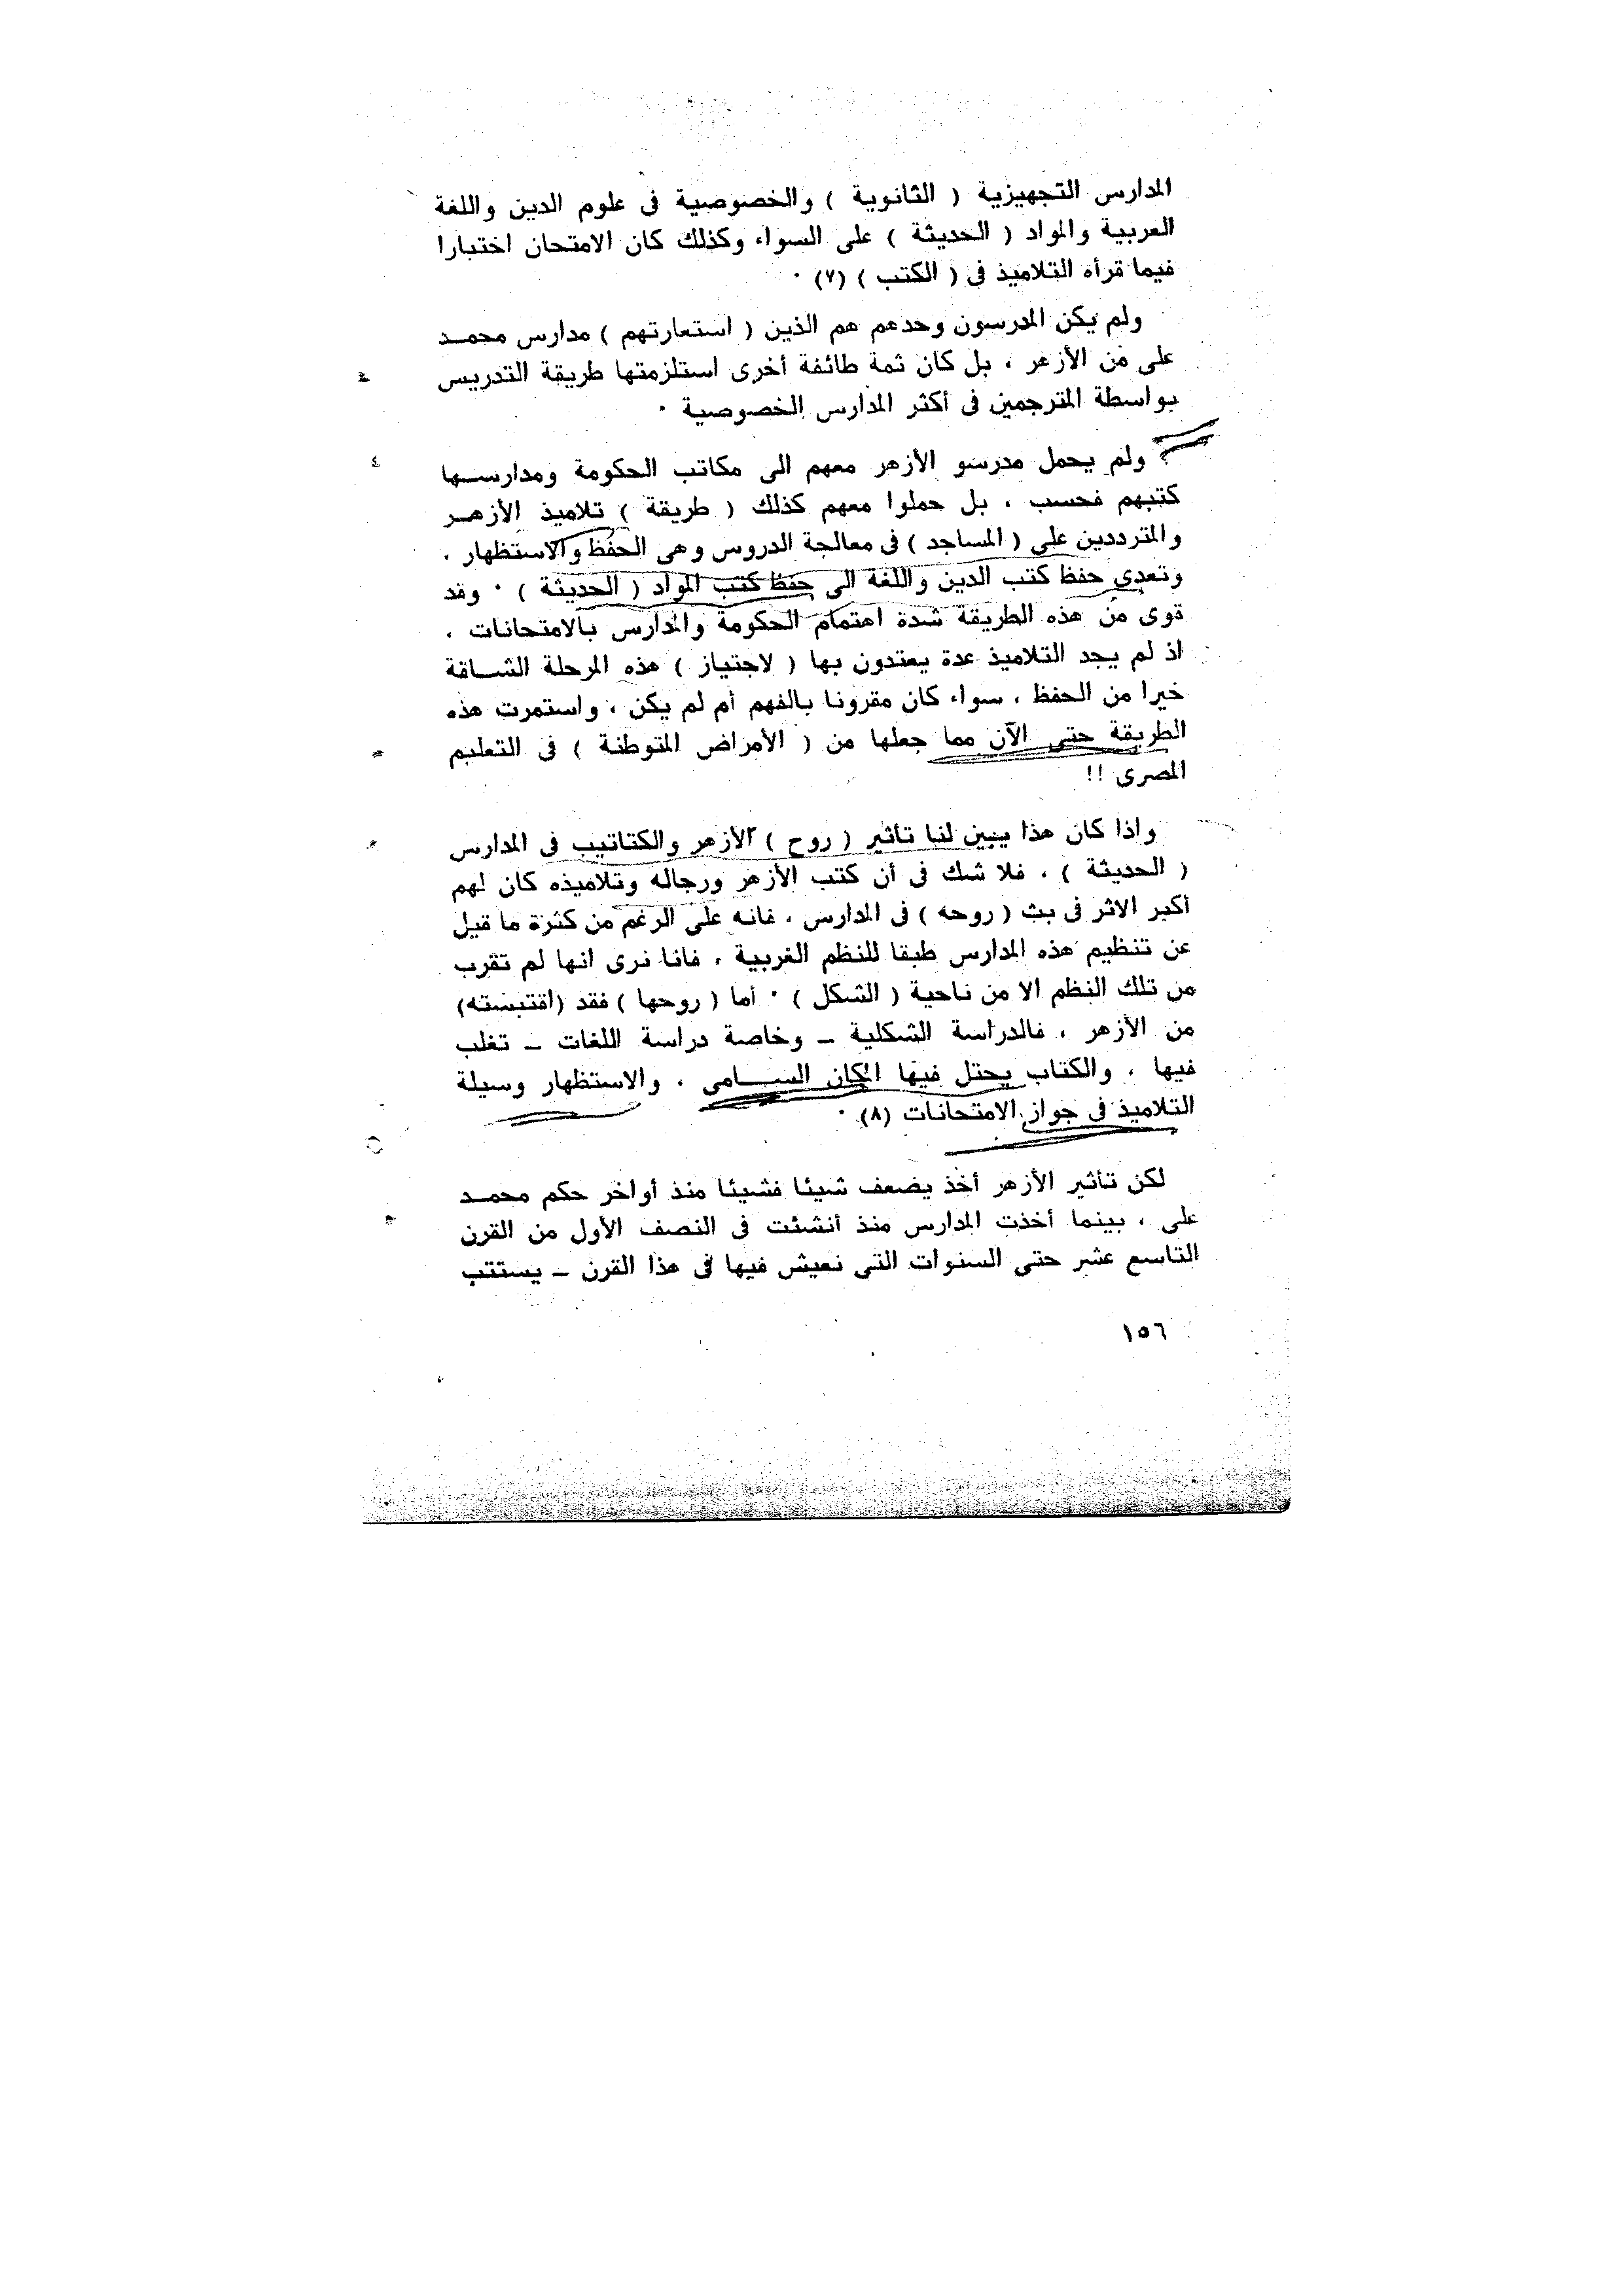 المدارس التجهيزية ( الثانوية ) والخصوصية فى علوم الدين واللغة
العربية والمواد ( الحديثة ) على السواء وكذلك كان الامتحان اختبارا
فيما قرأه التلاميذ فى ( الكتب ) (٧) ٠
ولم يكن المدرسون وحدهم هم الذين ( استعارتهم ) مدارس محمـد
على من الأزهر ، بل كان ثمة طائفة أخرى استلزمتها طريقة التدريس
بواسطة المترجمين فى أكثر المدارس الخصوصية ٠
ولم يحمل مدرسو الأزهر معهم الى مكاتب الحكومة ومدارسـها
كتبهم فحسب ، بل حملوا معهم كذلك ( طريقة ) تلاميذ الأزهـر
والمترددين على ( المساجد ) فى معالجة الدروس وهى الحفظ والاستظهار ،
وتعدى حفظ كتب الدين واللغة الى حفظ كتب المواد ( الحديثة ) ٠ وقد
قوى من هذه الطريقة شدة اهتمام الحكومة والمدارس بالامتحانات ،
اذ لم يجد التلاميذ عدة يعتدون بها ( لاجتياز ) هذه المرحلة الشـاقة
خيرا من الحفظ ، سواء كان مقرونا بالفهم أم لم يكن ، واستمرت هذه
الطريقة حتى الآن مما جعلها من ( الأمراض المتوطنة ) فى التعليم
المصرى !!
واذا كان هذا يبين لنا تأثير ( روح ) الأزهر والكتاتيب فى المدارس
( الحديثة ) ، فلا شك فى أن كتب الأزهر ورجاله وتلاميذه كان لهم
أكبر الاثر فى بث ( روحه ) فى المدارس ، فانه على الرغم من كثرة ما قيل
عن تنظيم هذه المدارس طبقا للنظم الغربية ، فانا نرى انها لم تقرب
من تلك النظم الا من ناحية ( الشكل ) ٠ أما ( روحها ) فقد (اقتبسته)
من الأزهر ، فالدراسة الشكلية ــ وخاصة دراسة اللغات ــ تغلب
فيها ، والكتاب يحتل فيها المكان السـامى ، والاستظهار وسيلة
التلاميذ فى جواز الامتحانات (٨) ٠
لكن تأثير الأزهر أخذ يضعف شيئا فشيئا منذ أواخر حكم محمـد
على ، بينما أخذت المدارس منذ أنشئت فى النصف الأول من القرن
التاسع عشر حتى السنوات التى نعيش فيها فى هذا القرن ــ يستتب
١٥٦